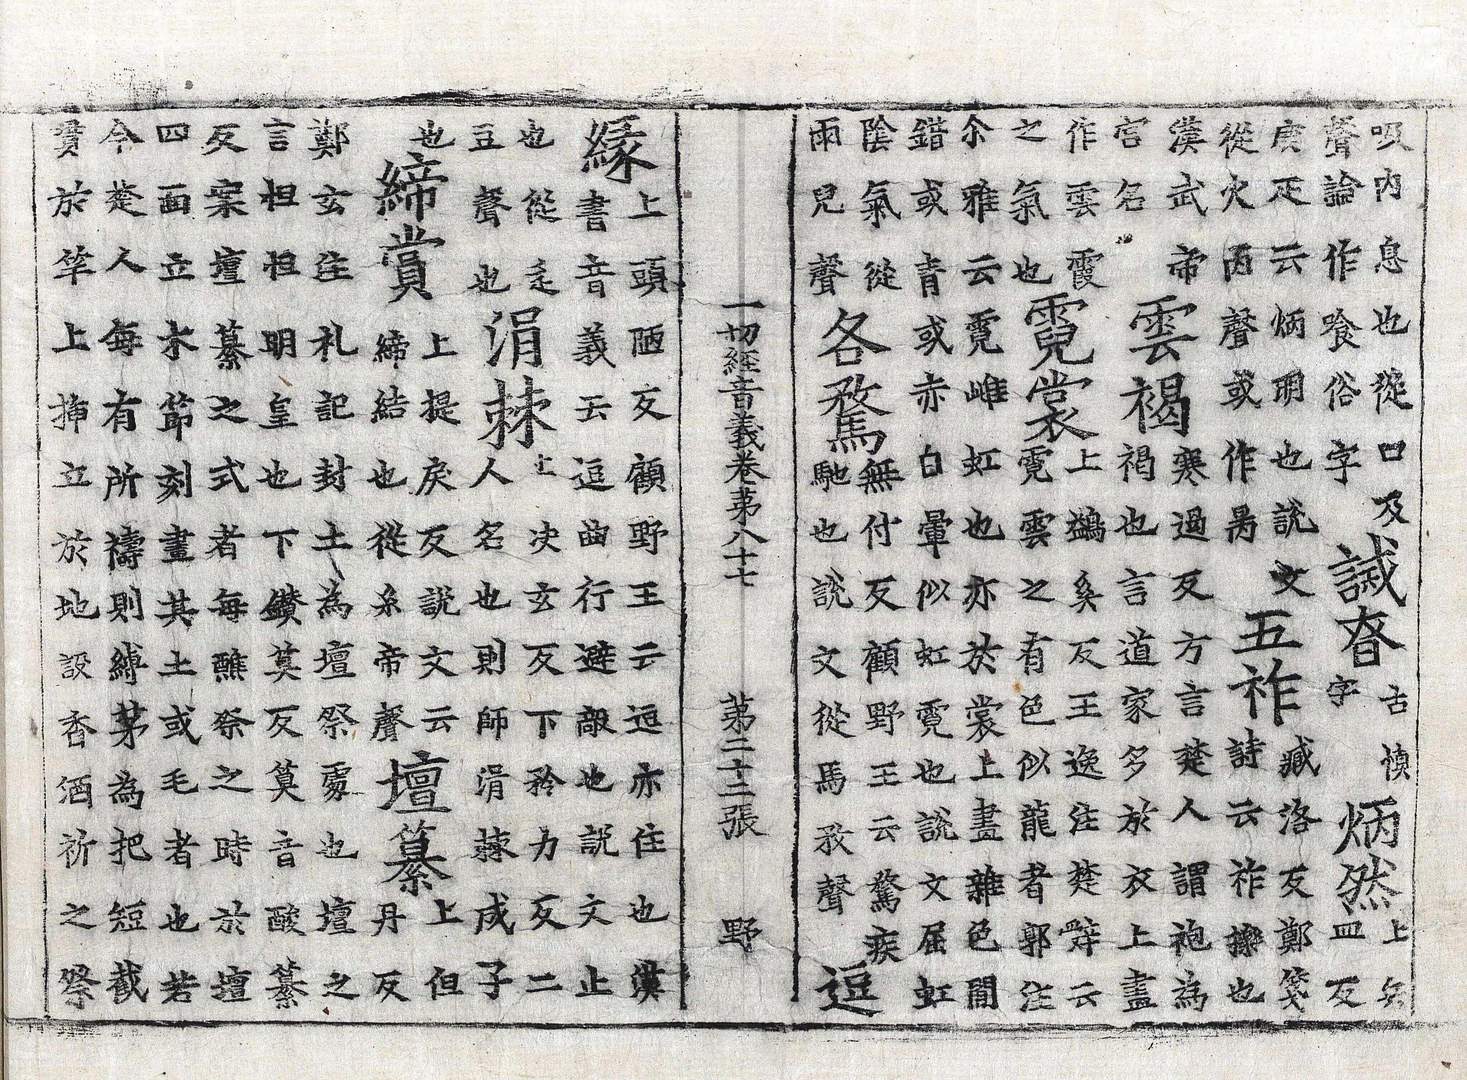 吸內息也從口及
聲論作喰俗字
誡昚
古慎
字
炳然
上兵
皿反
庚疋云炳明也說文
從火丙聲或作昺
五祚
臧洛反鄭箋
詩云祚也
漢武帝
宮名
雲褐
寒過反方言楚人謂袍為
褐也言道家多於衣上畫
作雲霞
之氣也
霓裳
上鷁奚反王逸注楚辭云
霓雲之有色似龍者郭注
尒雅云霓雌虹也亦於裳上畫雜色閒
錯或青或赤白暈似虹霓也說文屈虹
陰氣從
雨兒聲
各騖
無付反顧野王云驚疾
馳也說文從馬敄聲
逗
一切經音義卷苐八十七 苐二十二張 野
緣
上頭陋反顧野王云逗亦住也漢
書音義云逗曲行避敵也說文止
也從辵
豆聲也
涓棘
上決玄反下矜力反二
人名也則師涓蕀成子
也
締賞
上提戾反說文云
締結也從糸帝聲
壇纂
上但
丹反
鄭玄注礼記封土為壇祭處也壇之
言坦坦明皇也下鑽莫反莫音酸纂
反案壇纂之式者每醮祭之時於壇
四面立木節刻畫其土或毛者也若
今楚人每有所禱則縛茅為把短截
於竿上揷立於地設香酒祈之祭